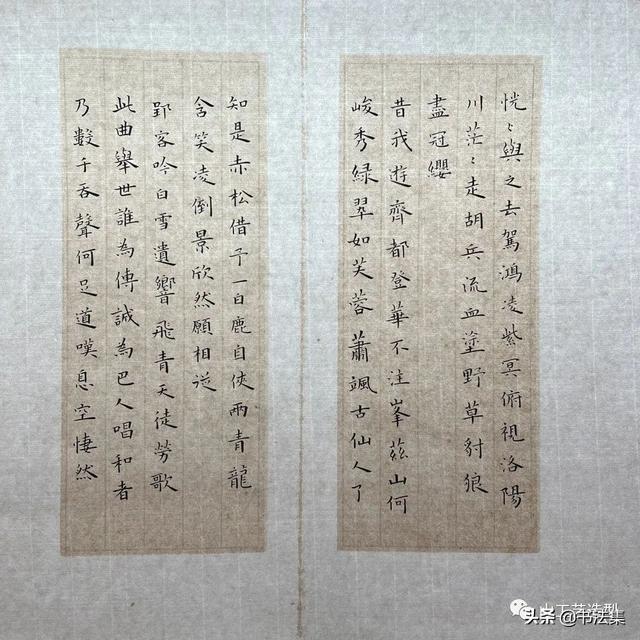 恍〻與之去駕鴻凌紫冥俯視洛陽
川茫〻走胡兵流血塗野草豺狼
盡冠纓
昔我遊齊都登華不注峯茲山何
峻秀綠翠如芙蓉蕭颯古仙人了
知是赤松借予一白鹿自俠兩青龍
含笑凌倒景欣然願相從
郢客吟白雪遺響飛青天徒勞歌
此曲舉世誰為傳誠為巴人唱和者
乃數千吞聲何足道嘆息空悽然
头条 @书法集